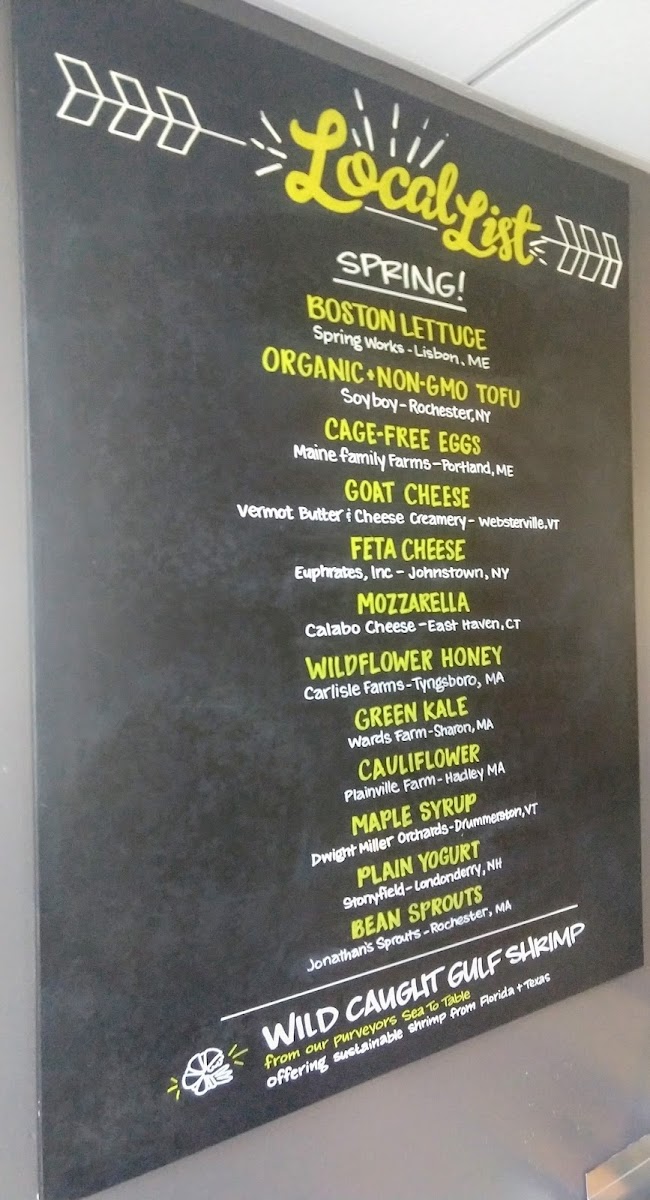 Local List
SPRING!
BOSTON LETTUCE
Spring Works - Lisbon, ME
ORGANIC + NON-GMO TOFU
Soyboy - Rochester, NY
CAGE-FREE EGGS
Maine family Farms - Portland, ME
GOAT CHEESE
Vermot Butter & Cheese Creamery - Websterville, VT
FETA CHEESE
Euphrates, Inc - Johnstown, NY
MOZZARELLA
Calabo Cheese - East Haven, CT
WILDFLOWER HONEY
Carlisle Farms - Tyngsboro, MA
GREEN KALE
Wards Farm - Sharon, MA
CAULIFLOWER
Plainville Farm - Hadley MA
MAPLE SYRUP
Dwight Miller Orchards - Drummerston, VT
PLAIN YOGURT
Stonyfield - Londonderry, NH
BEAN SPROUTS
Jonathan's Sprouts - Rochester, MA
WILD CAUGHT GULF SHRIMP
from our purveyors Sea To Table
offering sustainable shrimp from Florida + Texas